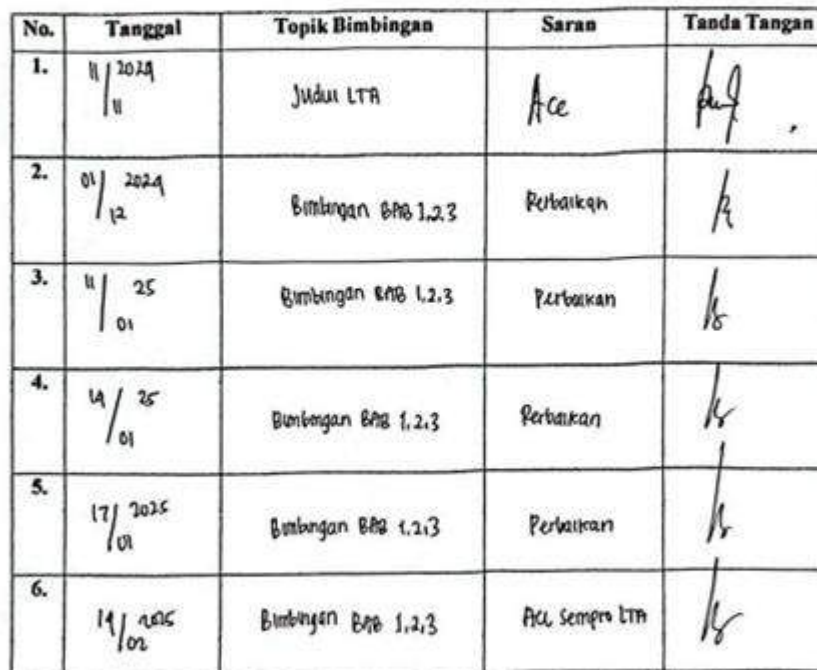 No. Tanggal Topik Bimbingan Saran Tanda Tangan
1. 11/11 2024 Judul LTA Acc
2. 01/12 2024 Bimbingan BAB 1,2,3 Perbaikan
3. 11/01 25 Bimbingan BAB 1,2,3 Perbaikan
4. 14/01 25 Bimbingan BAB 1,2,3 Perbaikan
5. 17/01 2025 Bimbingan BAB 1,2,3 Perbaikan
6. 2025 Bimbingan BAB 1,2,3 Acc Sempro LTA